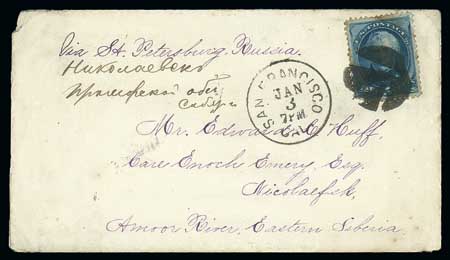 U.S. POSTAGE
Via St. Petersburg, Russia.
Николаевскъ
Приморской обл.
SAN FRANCISCO
JAN
3
7PM
CAL.
Mr. Edward C. Huff,
Care Enoch Emery, Esq.
Nicolaefsk,
Amoor River, Eastern Siberia